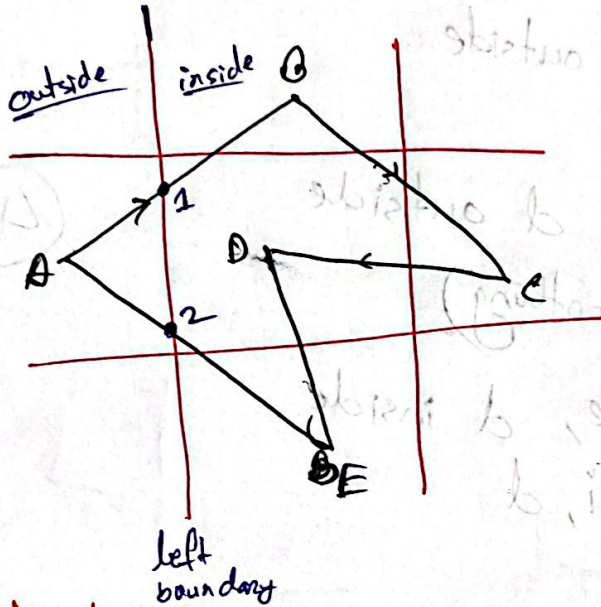 outside
inside
B
1
A
D
C
2
E
left
boundary